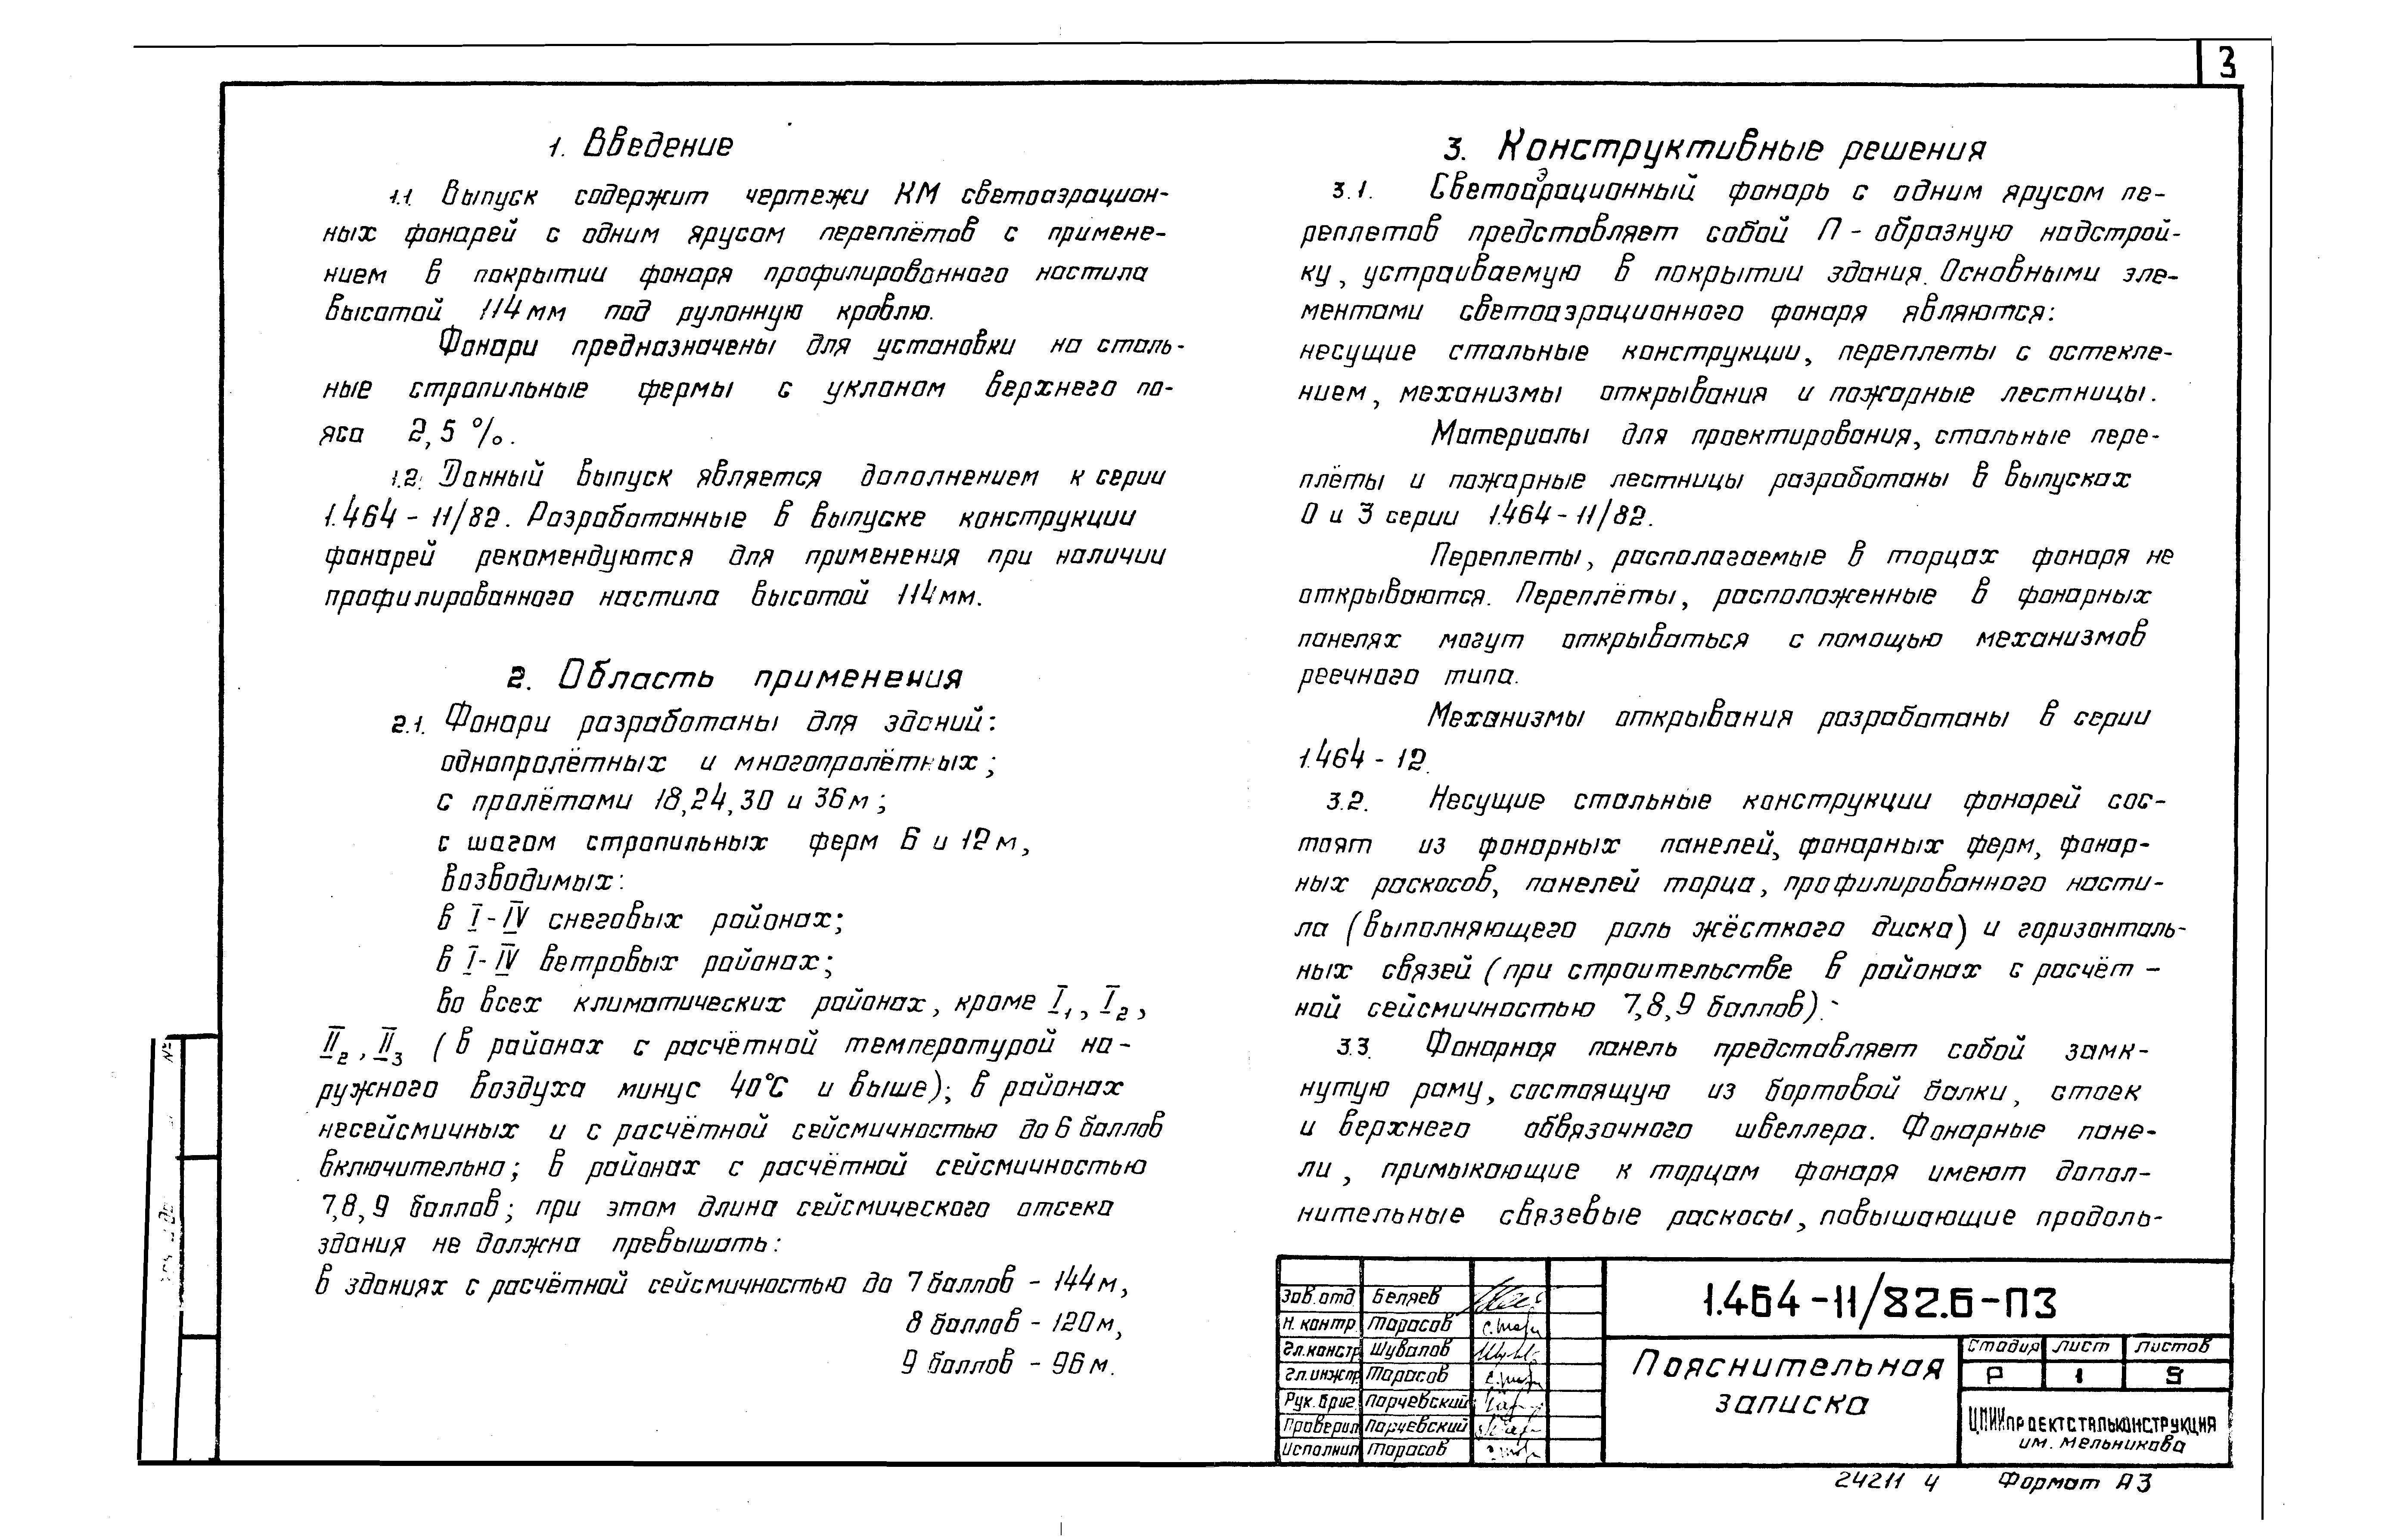 3
1. Введение
1.1. Выпуск содержит чертежи КМ светоаэрацион-
ных фонарей с одним ярусом переплётов с примене-
нием в покрытии фонаря профилированного настила
высотой 114 мм под рулонную кровлю.
Фонари предназначены для установки на сталь-
ные стропильные фермы с уклоном верхнего по-
яса 2,5 %.
1.2. Данный выпуск является дополнением к серии
1.464-11/82. Разработанные в выпуске конструкции
фонарей рекомендуются для применения при наличии
профилированного настила высотой 114 мм.
2. Область применения
2.1. Фонари разработаны для зданий:
однопролётных и многопролётных;
с пролётами 18,24,30 и 36м;
с шагом стропильных ферм 6 и 12м,
возводимых:
в I-IV снеговых районах;
в I-IV ветровых районах;
во всех климатических районах, кроме I₁, I₂,
II₂, II₃ (в районах с расчётной температурой на-
ружного воздуха минус 40°С и выше); в районах
несейсмичных и с расчётной сейсмичностью до 6 баллов
включительно; в районах с расчётной сейсмичностью
7,8,9 баллов; при этом длина сейсмического отсека
здания не должна превышать:
в зданиях с расчётной сейсмичностью до 7 баллов - 144м,
8 баллов - 120м,
9 баллов - 96м.
3. Конструктивные решения
3.1. Светоаэрационный фонарь с одним ярусом пе-
реплетов представляет собой П-образную надстрой-
ку, устраиваемую в покрытии здания. Основными эле-
ментами светоаэрационного фонаря являются:
несущие стальные конструкции, переплеты с остекле-
нием, механизмы открывания и пожарные лестницы.
Материалы для проектирования, стальные пере-
плёты и пожарные лестницы разработаны в выпусках
0 и 3 серии 1.464-11/82.
Переплеты, располагаемые в торцах фонаря не
открываются. Переплёты, расположенные в фонарных
панелях могут открываться с помощью механизмов
реечного типа.
Механизмы открывания разработаны в серии
1.464-12.
3.2. Несущие стальные конструкции фонарей сос-
тоят из фонарных панелей, фонарных ферм, фонар-
ных раскосов, панелей торца, профилированного насти-
ла (выполняющего роль жёсткого диска) и горизонталь-
ных связей (при строительстве в районах с расчёт-
ной сейсмичностью 7,8,9 баллов).
3.3. Фонарная панель представляет собой замк-
нутую раму, состоящую из бортовой балки, стоек
и верхнего обвязочного швеллера. Фонарные пане-
ли, примыкающие к торцам фонаря имеют допол-
нительные связевые раскосы, повышающие продоль-
Зав. отд. Беляев
Н. контр. Тарасов
Гл.констр. Шувалов
Гл.инж.пр. Тарасов
Рук. бриг. Парчевский
Проверил Парчевский
Исполнил Тарасов
1.464-11/82.6-ПЗ
Пояснительная
записка
Стадия Лист Листов
Р 1 9
ЦНИИпроектстальконструкция
им. Мельникова
24211 4 Формат А3